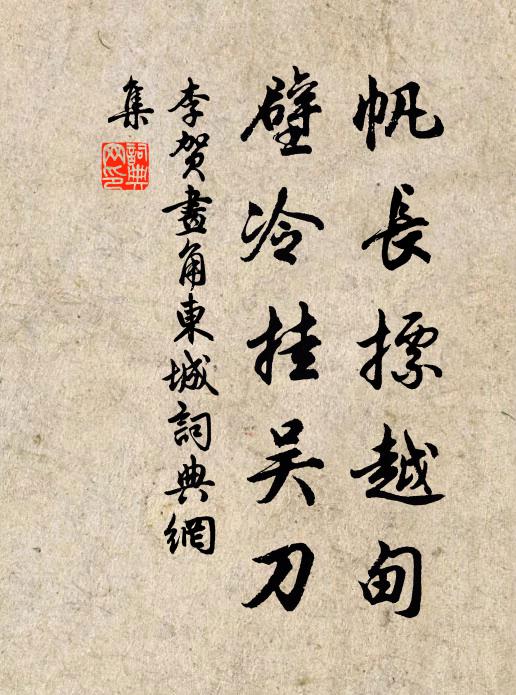 帆長摽越甸
壁冷挂吴刀
李賀畫角東城詞典網
集
詞典網印